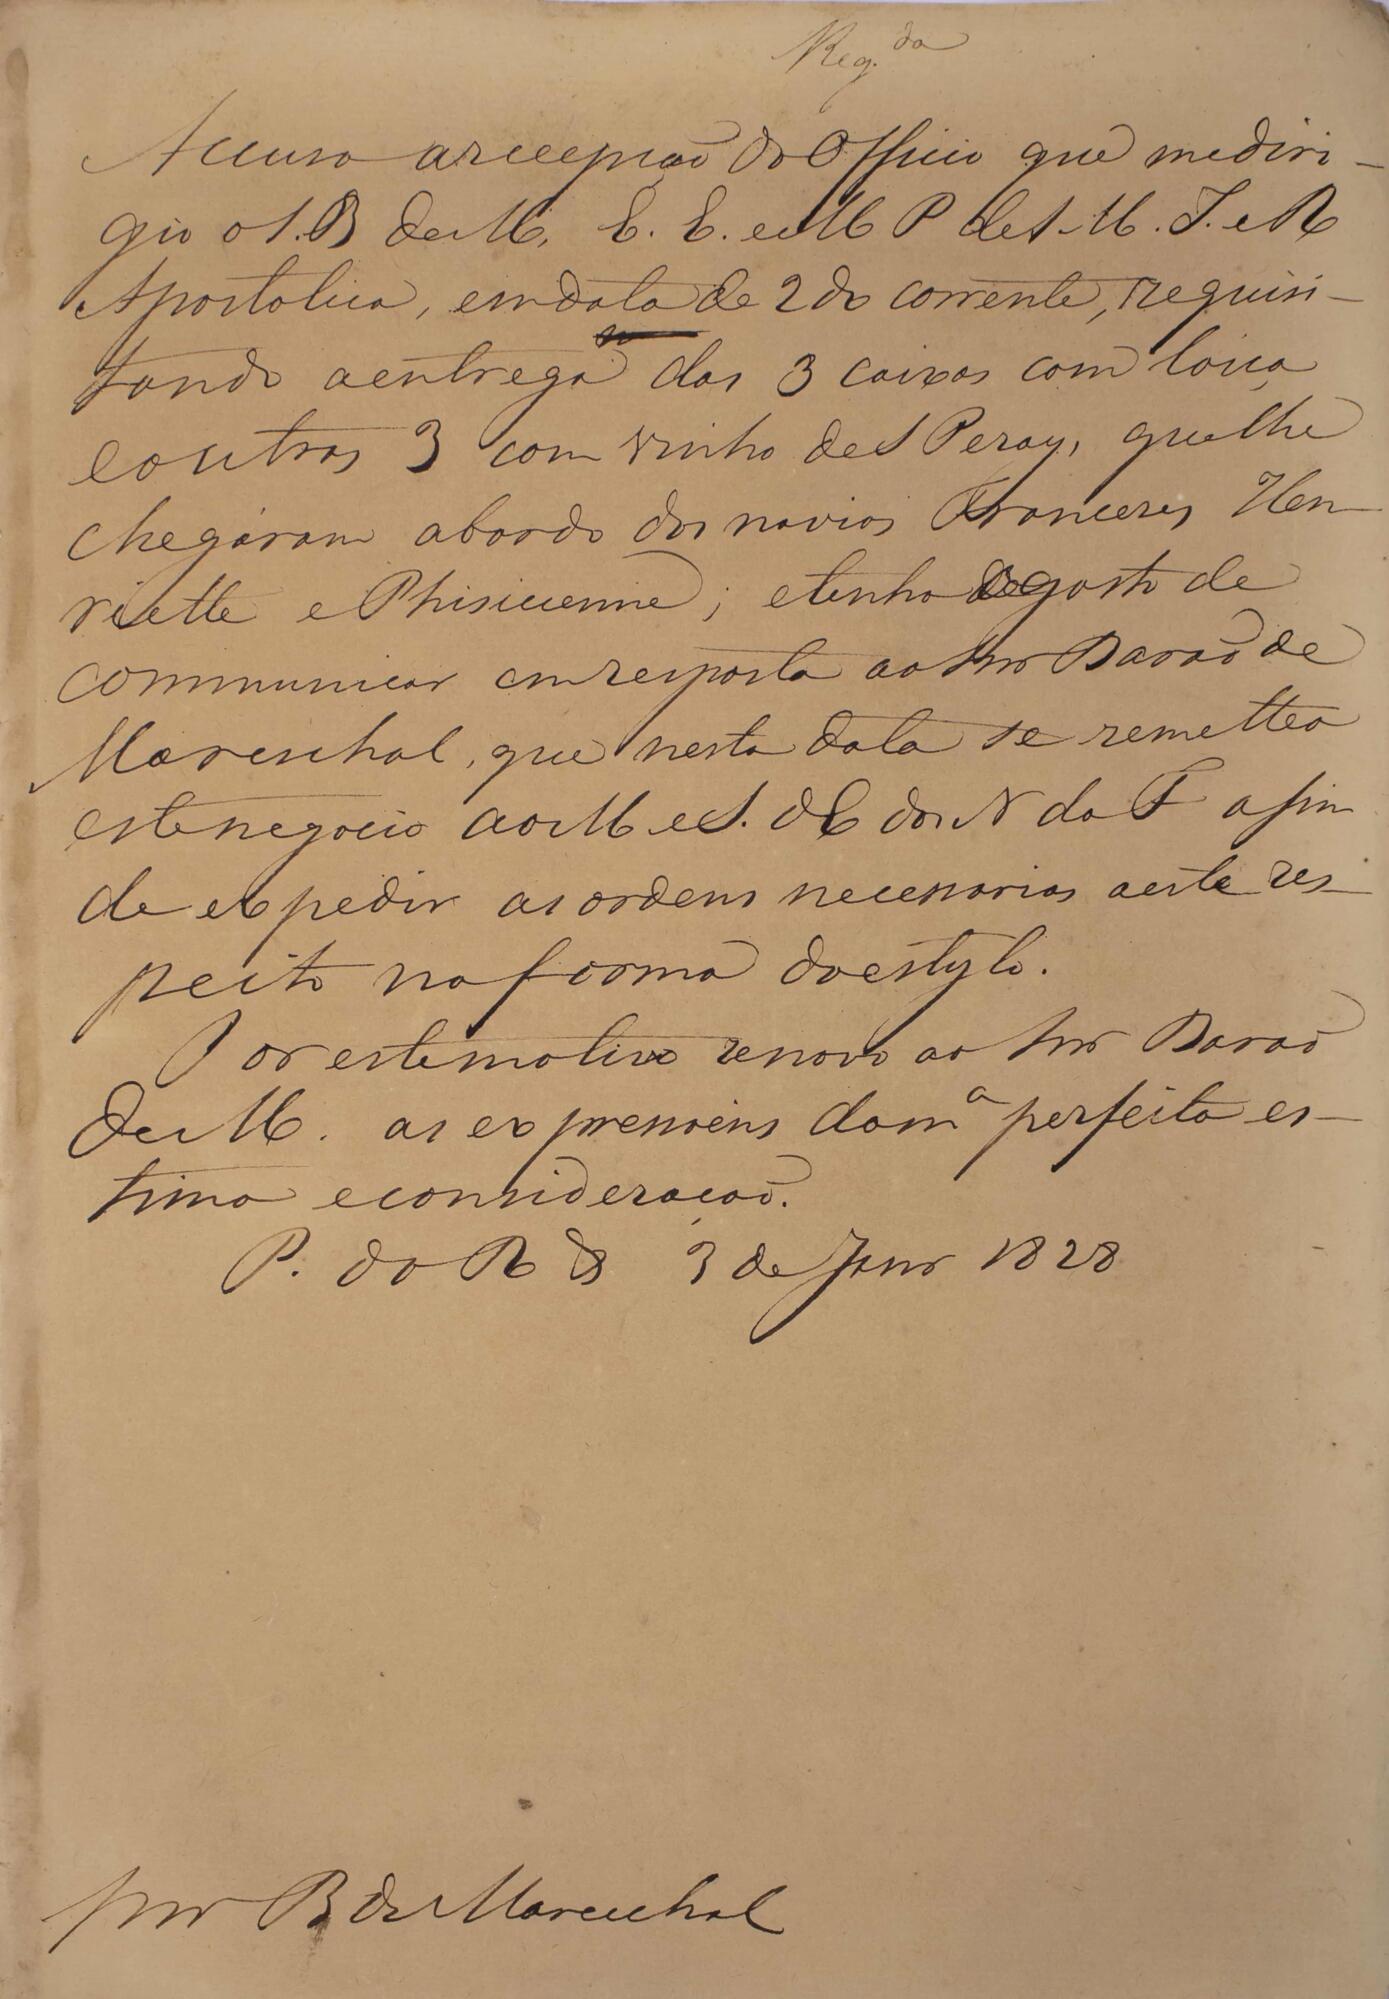 Reg.da
Accuso a recepção do Officio que me diri-
gio o S. B de M. E. E. e M P de S. M. I. e R
Apostolica, em data de 2 do corrente, requisi-
tando a entrega das 3 caixas com loiça
e outras 3 com vinho de S Peray, que lhe
chegáram a bordo dos navios Francezes Hen-
riette e Phisicienne; e tenho o gosto de
communicar em resposta ao Snr Barão de
Mareschal, que nesta data se remetteo
este negocio ao M e S. d'E dos N da F afim
de expedir as ordens necessarias a este res-
peito na forma do estylo.
Por este motivo renovo ao Snr Barão
de M. as expressoens da m.a perfeita es-
tima e consideração.
P. do R de 3 de Janr 1828
Snr B de Mareschal